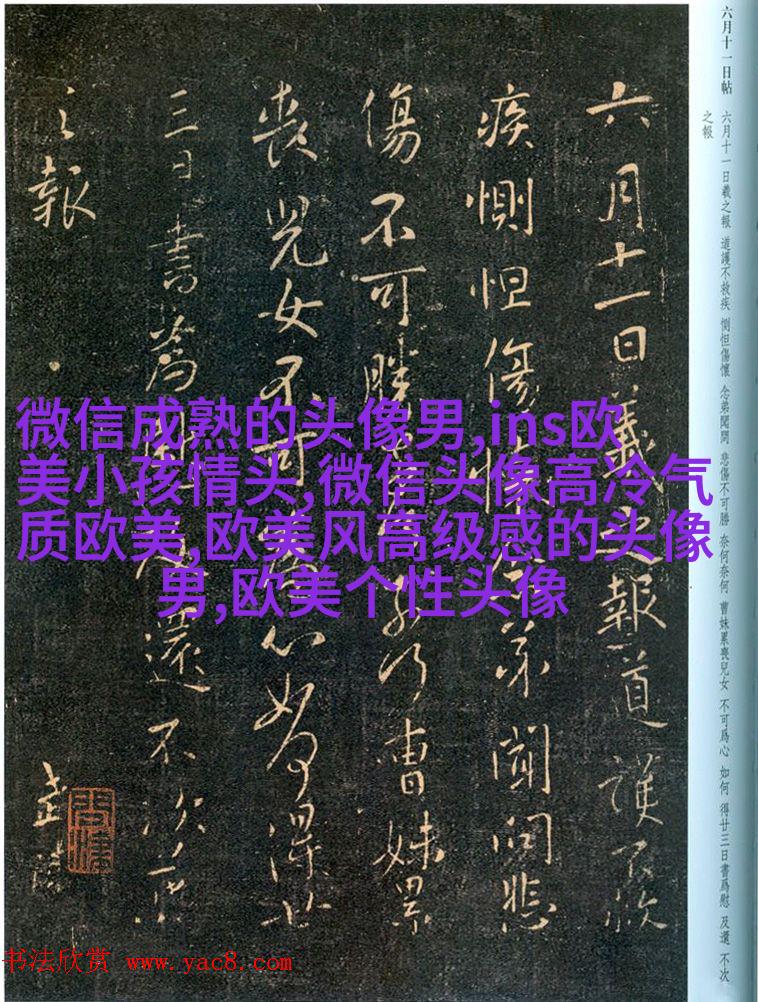 六月十一日帖 六月十一日羲之報 道護不救疾 惻怛傷懷 念弟聞問 悲傷不可勝 奈何奈何 曹妹累喪兒女 不可爲心 如何 得廿三日書爲慰 及還 不次
之報
六月十一日羲之報道護不救
疾惻怛傷懷念弟聞問悲
傷不可勝奈何奈何曹妹累
喪兒女不可爲心如何得廿
三日書爲慰及還不次羲
之報
微信成熟的头像男,ins欧
美小孩情头,微信头像高冷气
质欧美,欧美风高级感的头像
男,欧美个性头像
书法欣赏 www.yac8.com